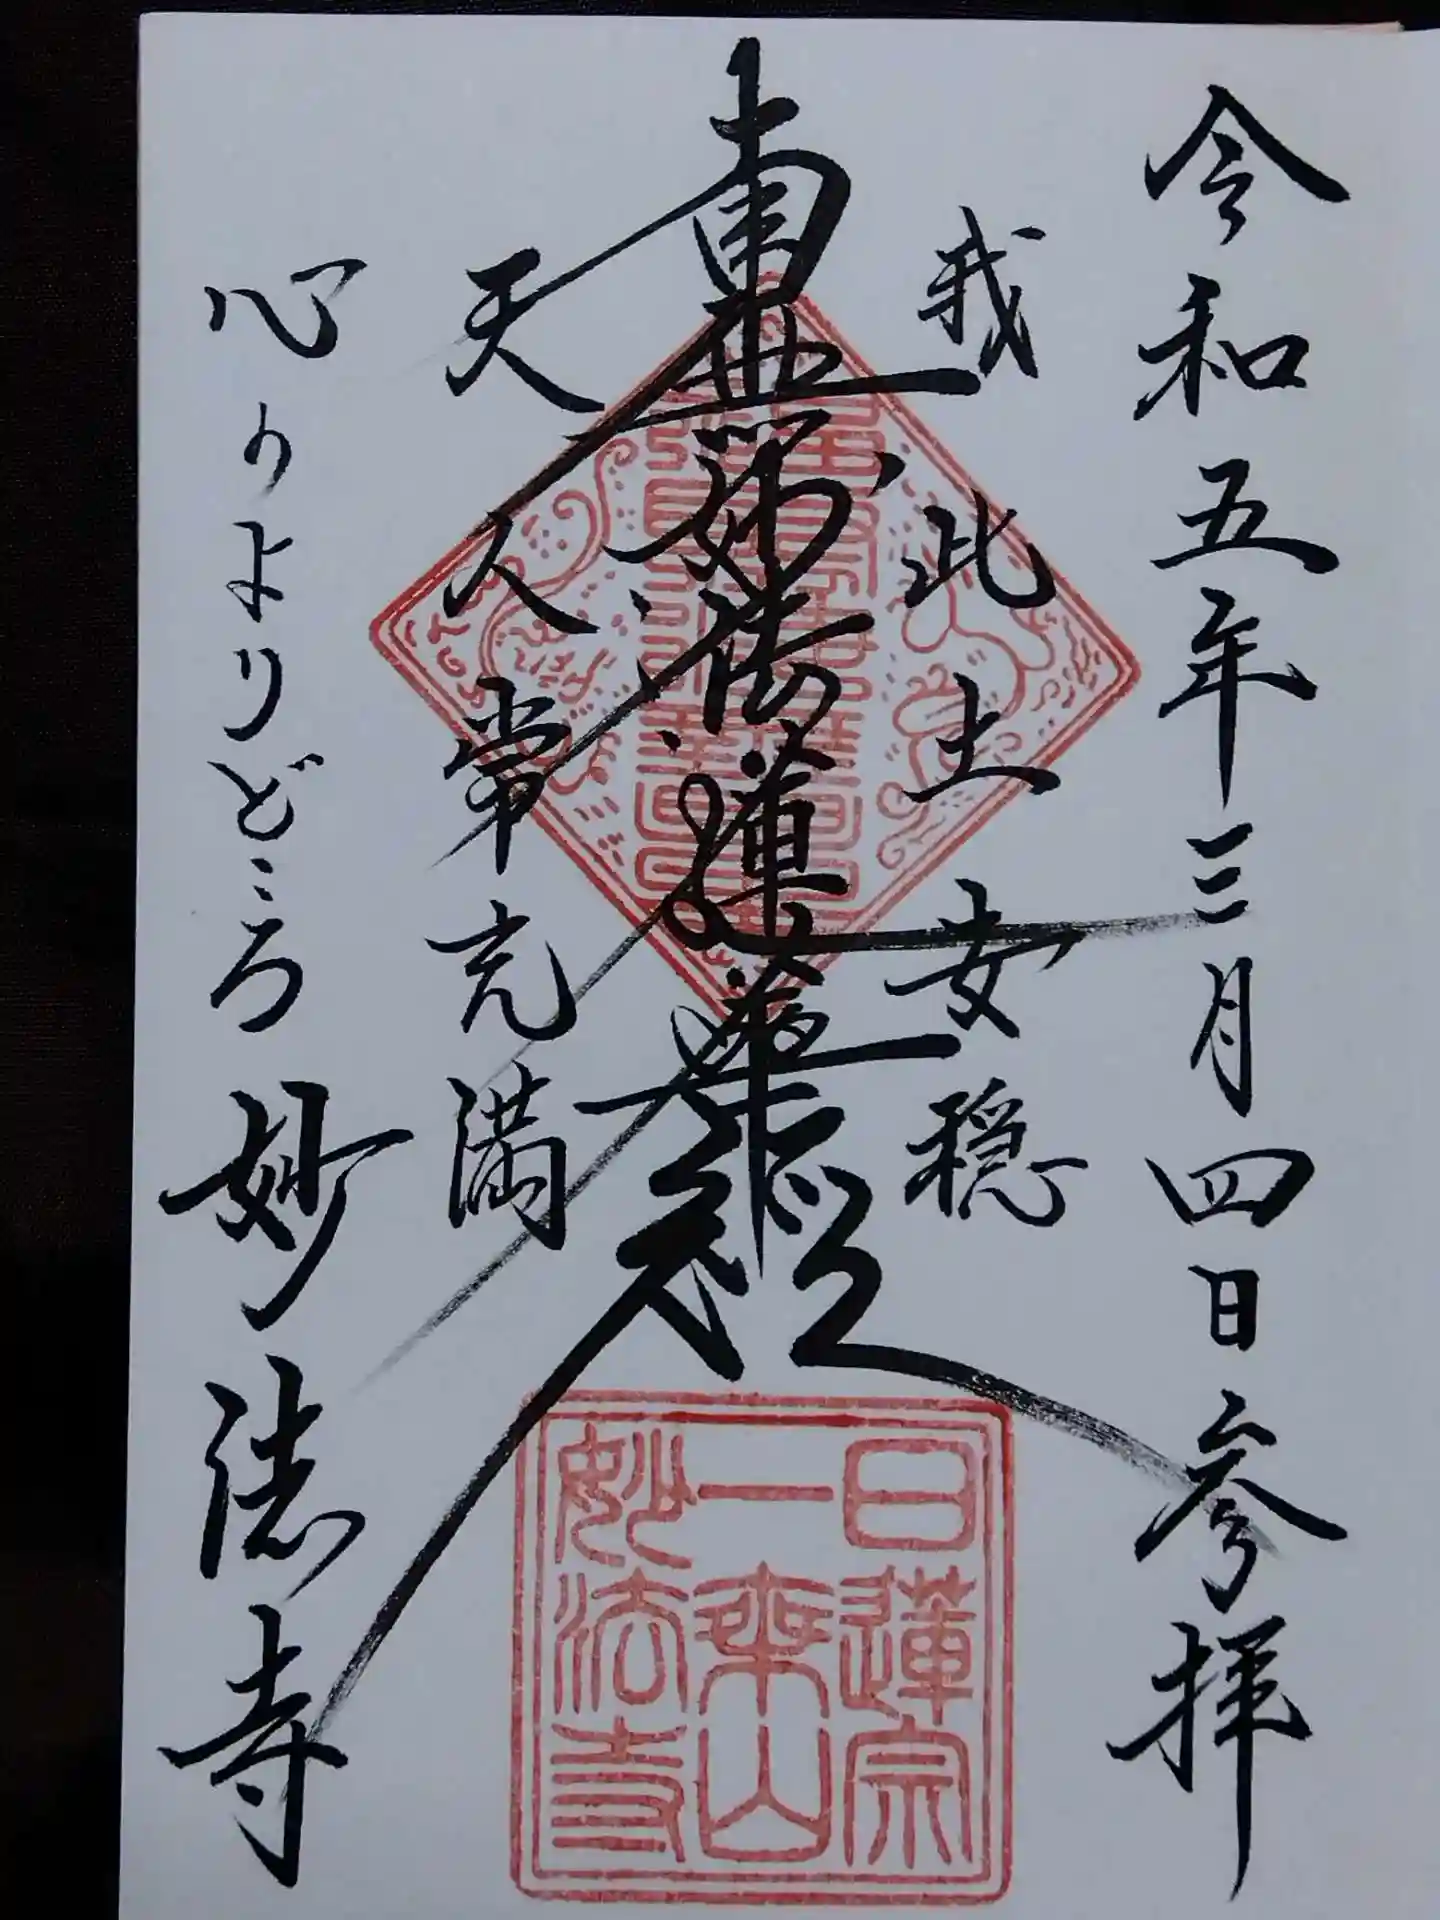 令和五年三月四日参拝
我此土安穏
南無妙法蓮華経
天人常充満
心のよりどころ 妙法寺
日蓮宗
一乗山
妙法寺